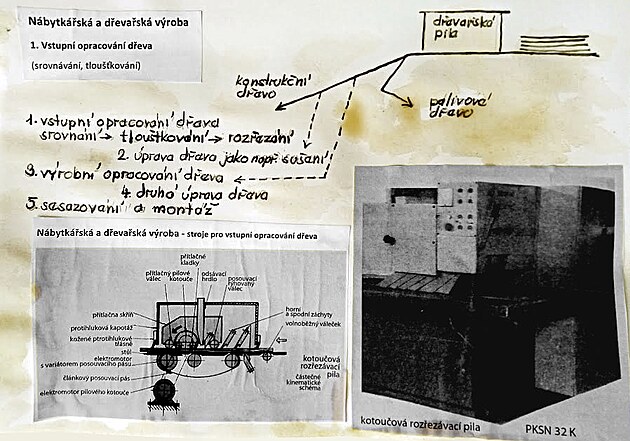 Nábytkářská a dřevařská výroba
1. Vstupní opracování dřeva
(srovnávání, tloušťkování)
dřevařská
pila
konstrukční
dřevo
palivové
dřevo
1. vstupní opracování dřeva
srovnání → tloušťkování → rozřezání
2. úprava dřeva jako např. sušení
3. výrobní opracování dřeva
4. druhá úprava dřeva
5. sesazování a montáž
Nábytkářská a dřevařská výroba - stroje pro vstupní opracování dřeva
přítlačné
kladky
přítlačný
válec
pilové
kotouče
odsávací
hrdlo
posouvací
rýhovaný
válec
přítlačna skříň
protihluková kapotáž
kožené protihlukové
třásně
stůl
elektromotor
s variátorem posouvacího pásu
článkový posouvací pás
elektromotor pilového kotouče
horní
a spodní záchyty
volnoběžný váleček
kotoučová
rozřezávací
pila
částečné
kinematické
schéma
kotoučová rozřezávací pila PKSN 32 K